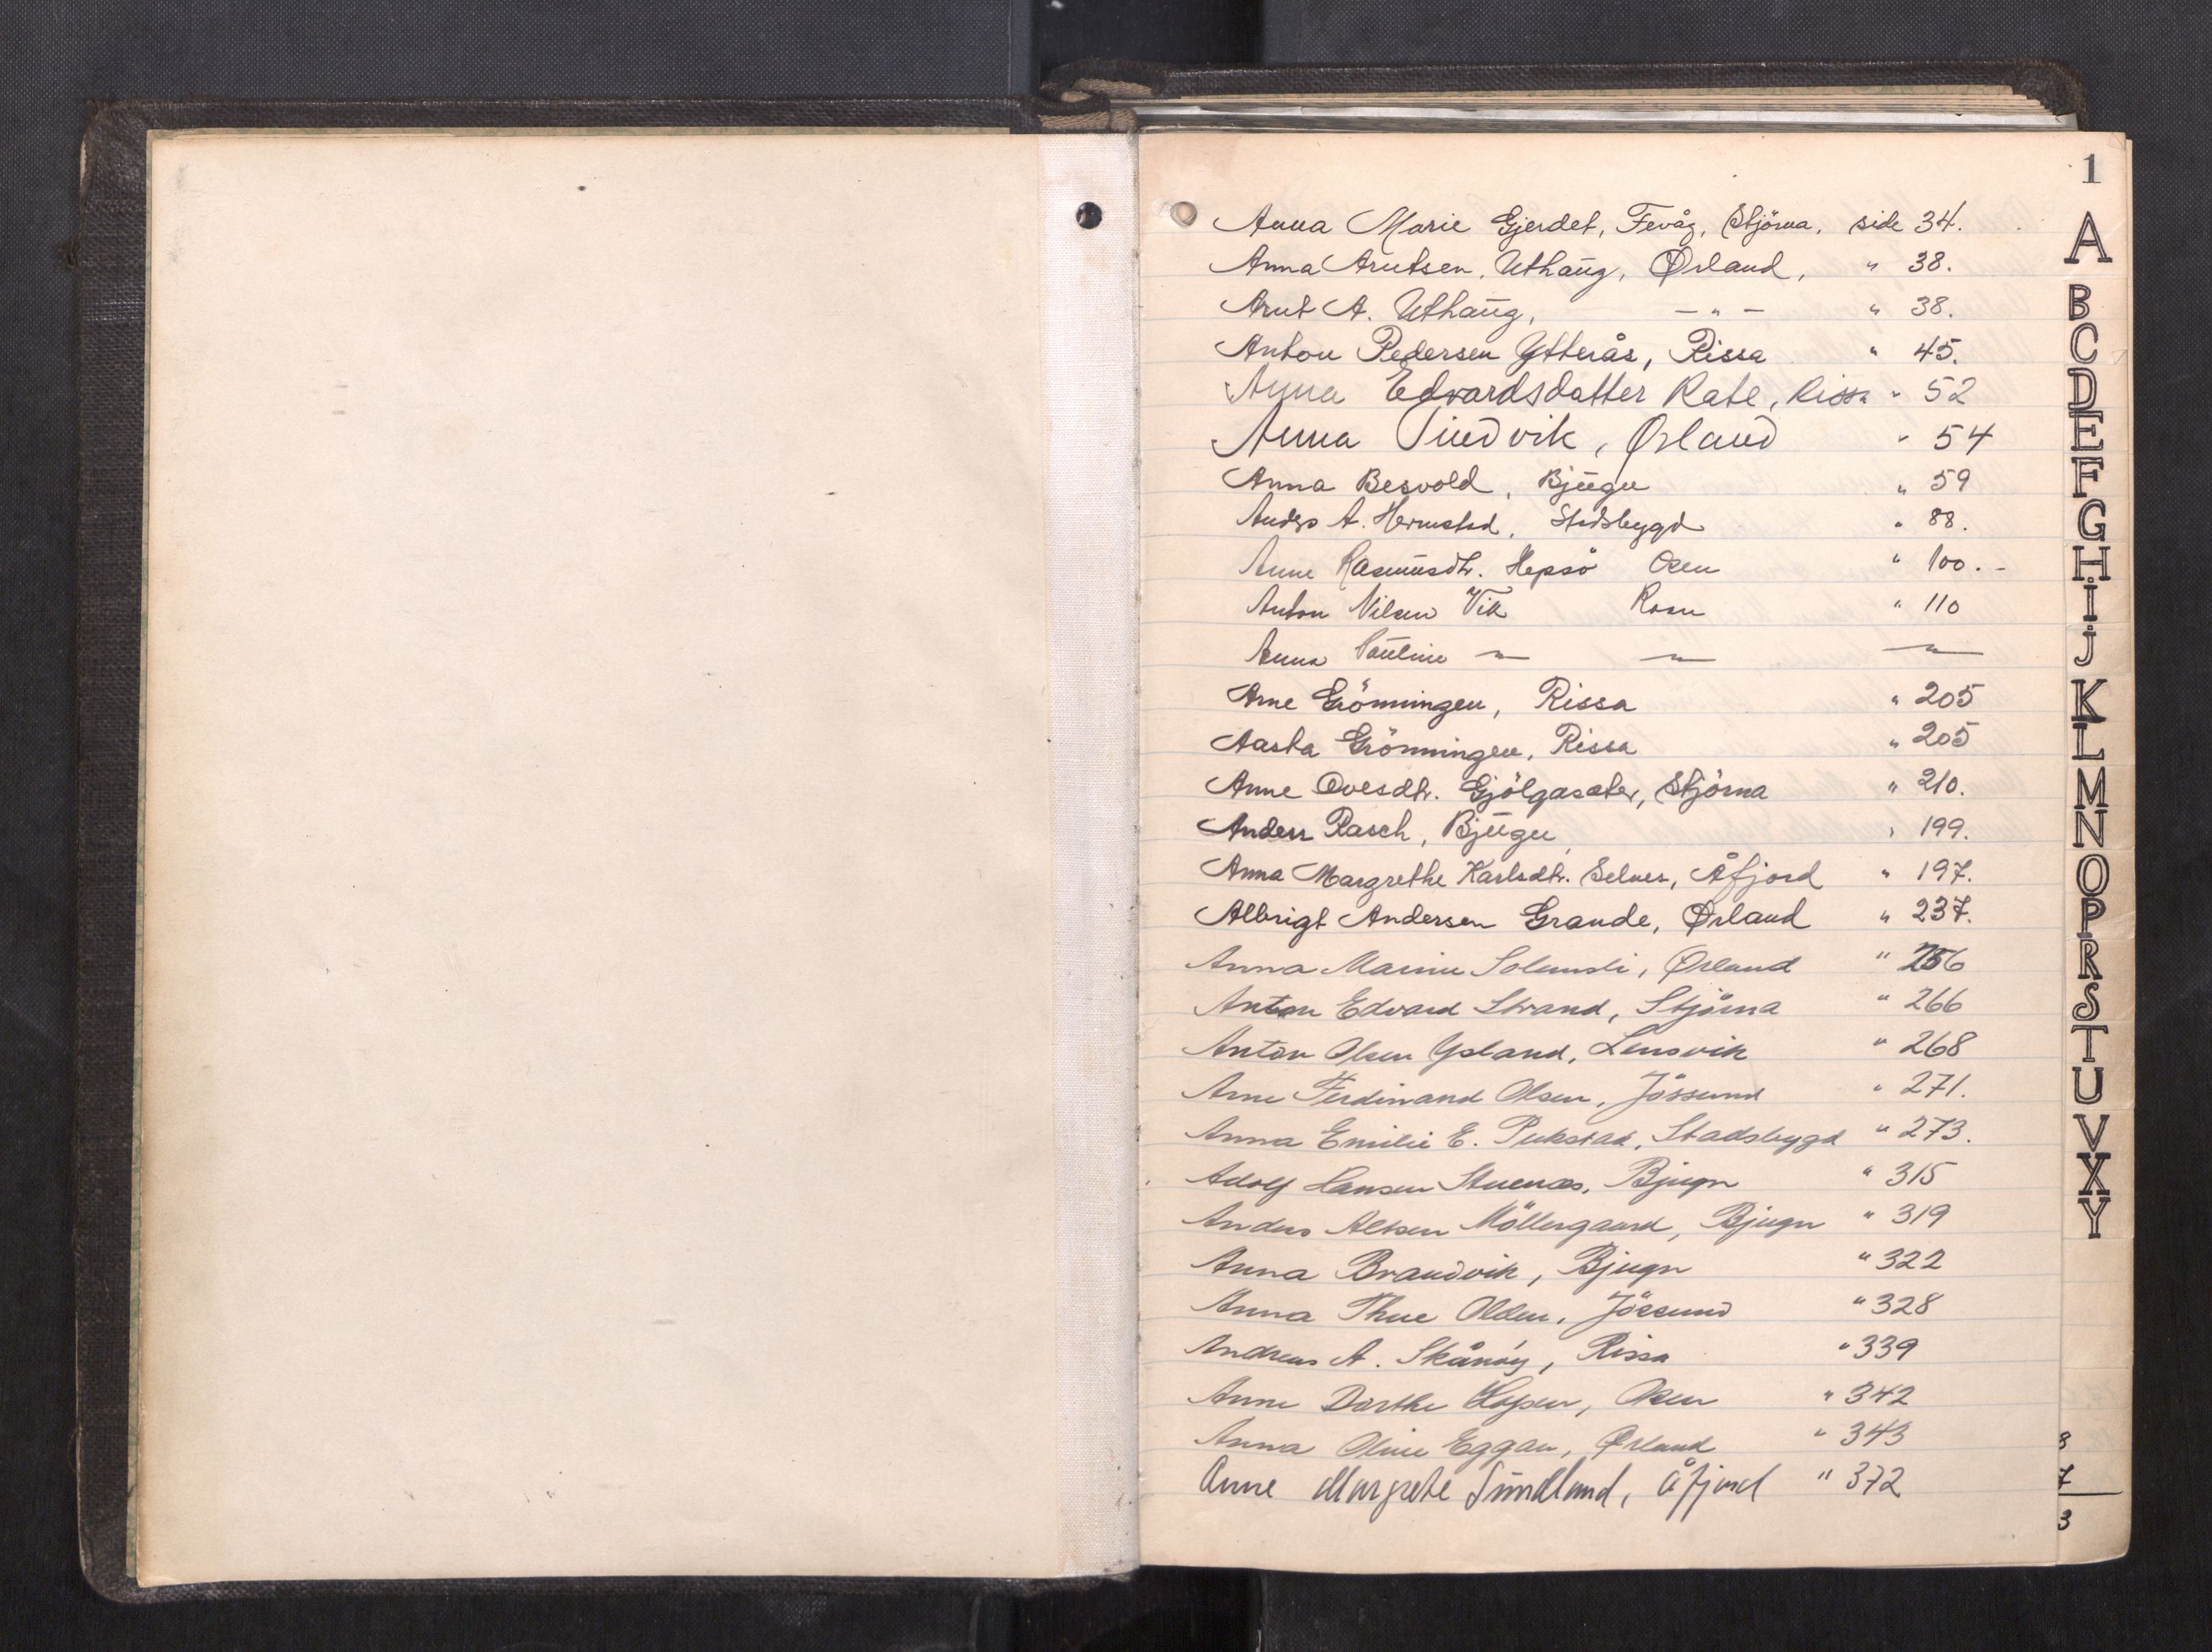 1
Anna Marie Gjerdet, Fevåg, Stjörna, side 34.
Anna Arntsen, Uthaug, Ørland, " 38.
Arnt A. Uthaug, — " — " 38.
Anton Pedersen Ytterås, Rissa " 45.
Anna Edvardsdatter Rabe, Rissa " 52
Anna Sundvik, Ørland " 54
Anna Besvold, Bjugn " 59
Anders A. Hermstad, Stadsbygd " 88.
Anne Rasmusdtr. Hepsö Osen " 100.-
Anton Nilsen Vik Roan " 110
Anna Pauline — " — — " — — " —
Arne Grönningen, Rissa " 205
Aasta Grönningen, Rissa " 205
Anne Ovesdtr. Gjölgasæter, Stjörna " 210.
Anders Rasch, Bjugn, " 199.
Anna Margrethe Karlsdtr. Selnes, Åfjord " 197.
Albrigt Andersen Grande, Ørland " 237.
Anna Marie Solemsli, Ørland " 256
Anton Edvard Strand, Stjörna " 266
Anton Olsen Ysland, Lensvik " 268
Arne Ferdinand Olsen, Jössund " 271.
Anna Emilie E. Pukstad, Stadsbygd " 273.
Adolf Hansen Stuenæs, Bjugn " 315
Anders Altsen Möllergaard, Bjugn " 319
Anna Brandvik, Bjugn " 322
Anna Thue Olden, Jössund " 328
Andreas A. Skånöy, Rissa " 339
Anne Dorthe Hopen, Osen " 342
Anna Oline Eggan, Ørland " 343
Anne Margrete Sundland, Åfjord " 372
A
B
C
D
E
F
G
H
I
J
K
L
M
N
O
P
R
S
T
U
V
X
Y
8
7
3